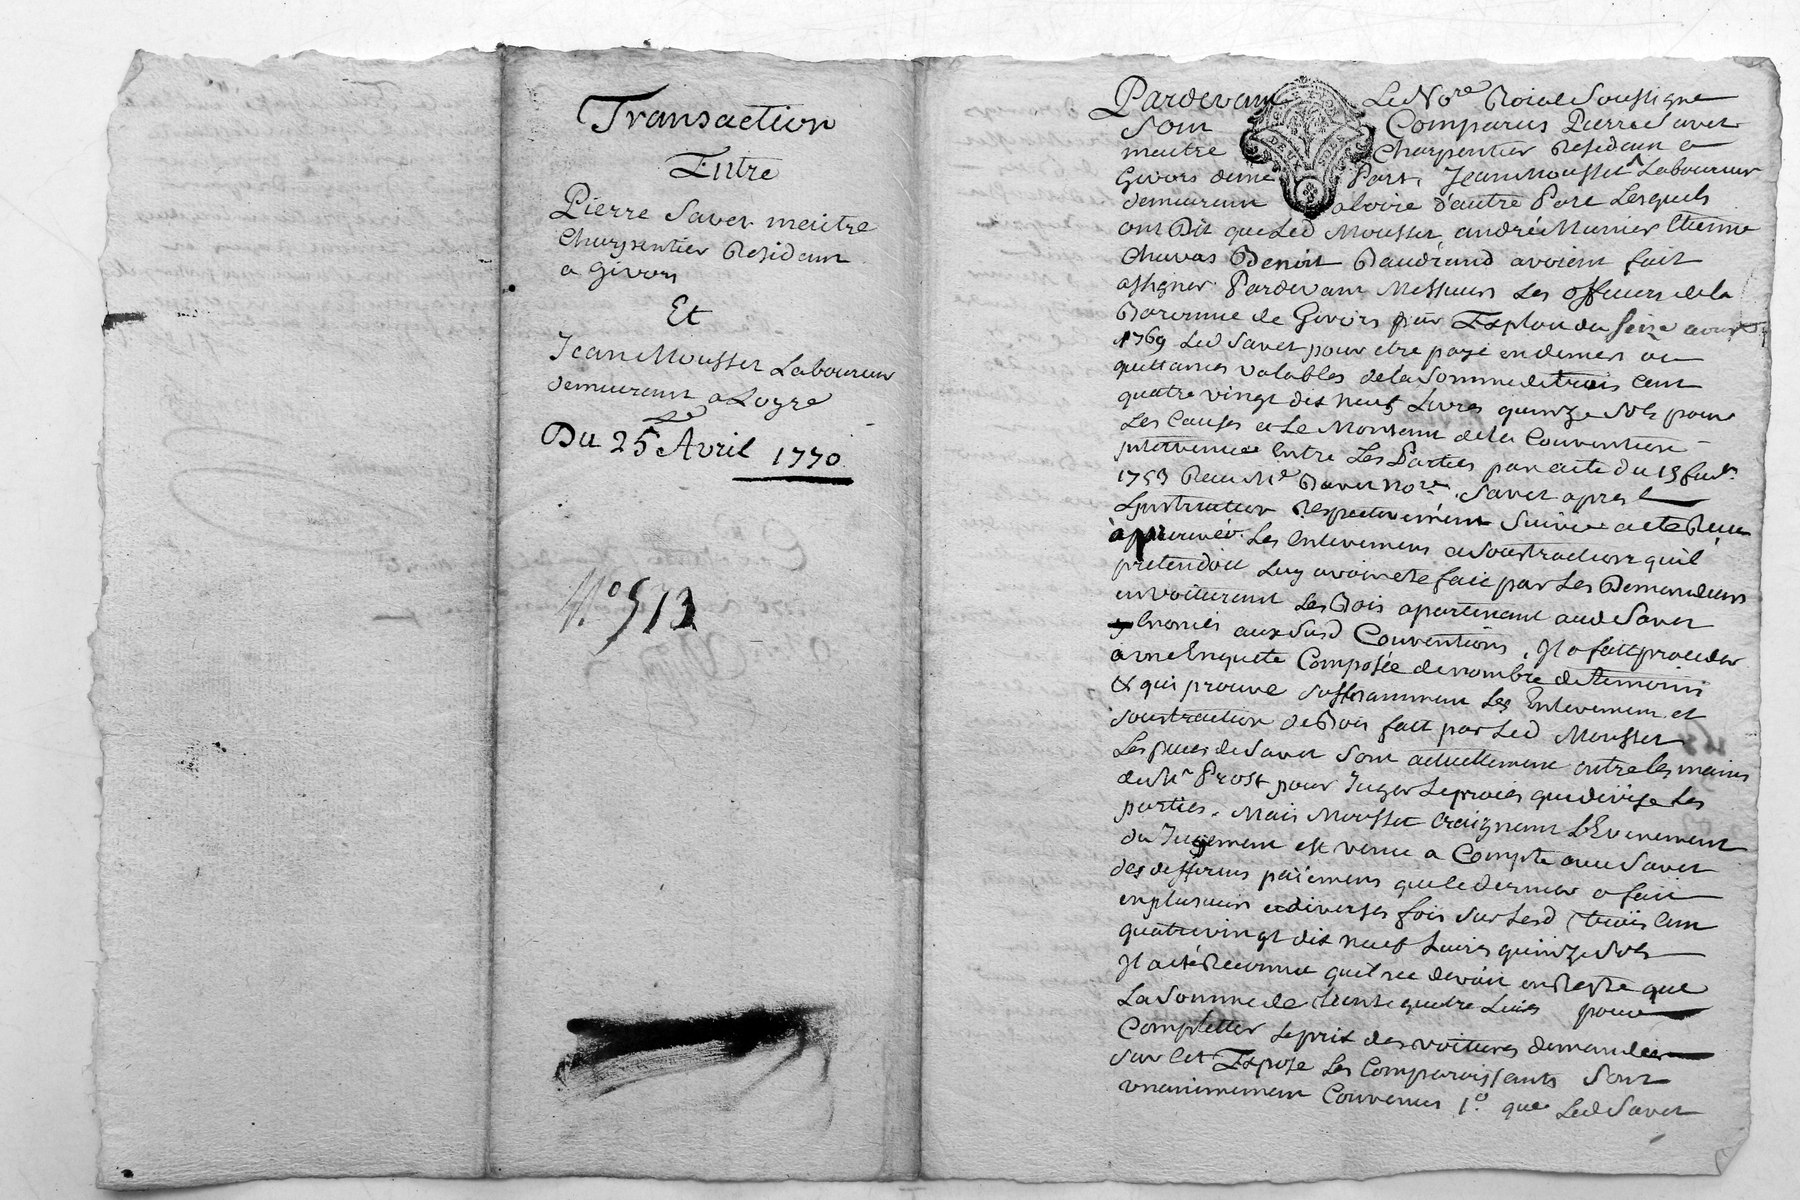 Transaction
Entre
Pierre Savet meitre
Charpentier Residant
a givors
Et
Jean Mousset Laboureur
demeurant a Loyre
Du 25e Avril 1770
N.o 513
Pardevant Le Nore Roial Soussigne
Sont Comparus Pierre Savet
meitre Charpentier Residant a
Givors dune Part, Jean Mousset Laboureur
demeurant a loire d'autre Part Lesquels
ont Dit que Led Mousset andré Munier Etienne
Chavas Benoit Baudrand avoient fait
assigner Pardevant Messieurs Les officiers de la
Baronnie de Givors par Exploit du seize aoust
1769 Led Savet pour etre payé en deniers ou
quittances valables de la Somme de trois Cent
quatre vingt dix neuf Livres quinze Sols pour
Les Causes et Le Montant de la Convention
intervenue Entre Les Parties par acte du 13
1753 Reçu Me Nore. Savet apres
respectivement Suivie a eté Reçu
à prouver Les Enlevemens et Soustraction quil
pretendoit Luy avoir eté fait par Les Demandeurs
en voiturant Les Bois apartenant aud Savet
Enoncés aux Susd Conventions, Il a fait proceder
a une Enquete Composée de nombre de temoins
& qui prouve Suffisamment Les Enlevement et
Soustraction de Bois fait par Led Mousset
Les pieces de Savet Sont actuellement entre les mains
de Mr Prost pour Juger Le procès qui divise Les
parties. Mais Mousset Craignant L'Evenement
du Jugement est venu a Compte avec Savet
des differens paiemens que le dernier a fait
en plusieurs et diverses fois Sur Lesd trois Cent
quatrevingt dix neuf Livres quinze Sols
Il a eté Reconnu quil ne devoit en Reste que
La Somme de trente quatre Livres pour
Completter Le prix des voitures demandées
Sur Cet Exposé Les Comparoissants Sont
unanimement Convenus 1.o que Led Savet